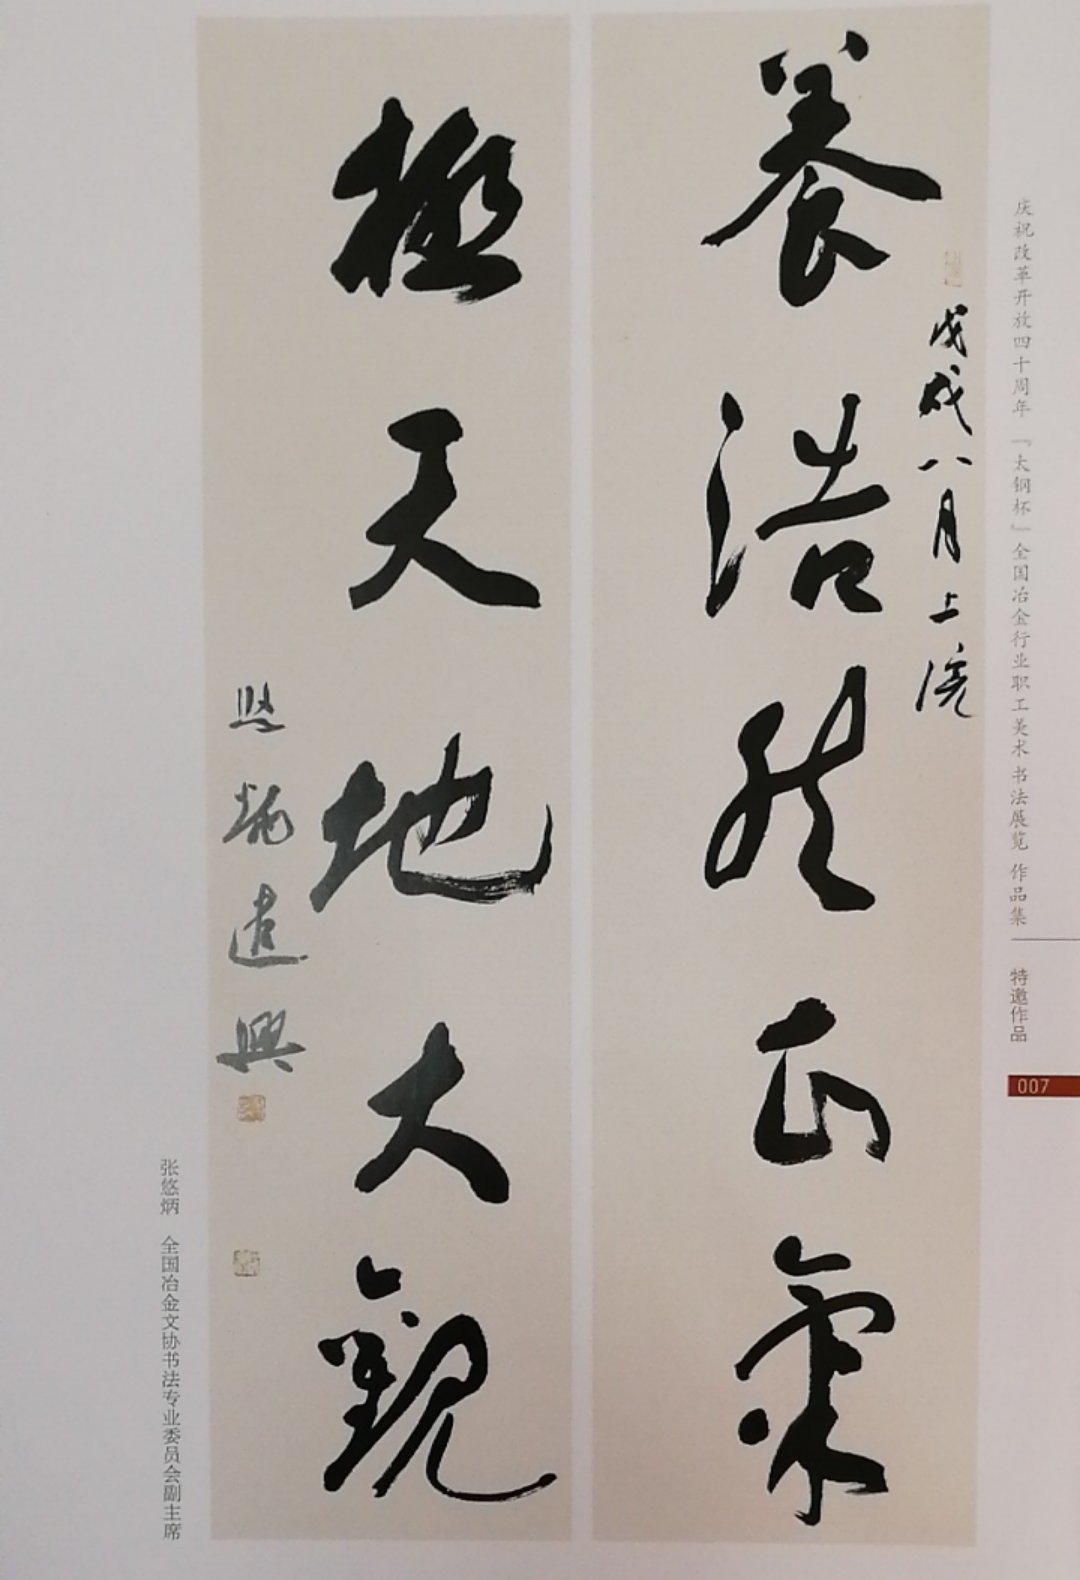 庆祝改革开放四十周年『太钢杯』全国冶金行业职工美术书法展览 作品集
特邀作品
007
戊戌八月上浣
養浩然正氣
極天地大觀
悠炳遣興
张悠炳 全国冶金文协书法专业委员会副主席